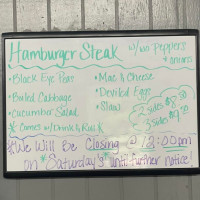 Hamburger Steak w/wo Peppers
& onions
• Black Eye Peas
• Mac & Cheese
• Boiled Cabbage
• Deviled Eggs
• Cucumber Salad
• Slaw
2 sides $8
3 sides $9
* Comes w/Drink &
*We Will Be Closing @ 12:00pm
on *Saturday's* until further notice!